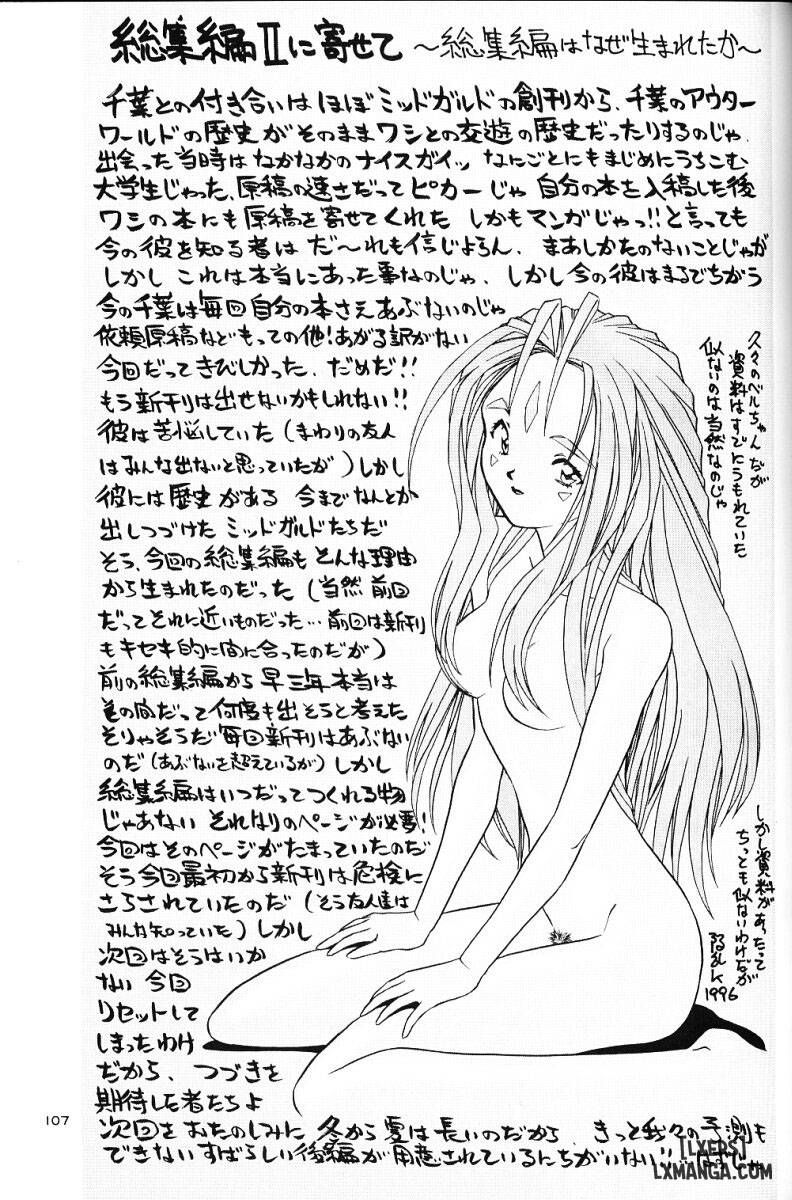 総集編Ⅱに寄せて 〜総集編はなぜ生まれたか〜
千葉との付き合いはほぼミッドガルドの創刊から、千葉のアウター
ワールドの歴史がそのままワシとの交遊の歴史だったりするのじゃ.
出会った当時はなかなかのナイスガイッ なにごとにもまじめにうちこむ
大学生じゃった、原稿の速さだってピカ一じゃ 自分の本を入稿した後
ワシの本にも原稿を寄せてくれた しかもマンガじゃっ!! と言っても
今の彼を知る者は だ〜れも信じよろん、まあしかたのないことじゃが
しかし これは本当にあった事なのじゃ、しかし今の彼はまるでちがう
今の千葉は毎回自分の本さえあぶないのじゃ
依頼原稿などもっての他!あがる訳がない
今回だってきびしかった、だめだ!!
もう新刊は出せないかもしれない!!
彼は苦悩していた(まわりの友人
はみんな出ないと思っていたが)しかし
彼には歴史がある 今までなんとか
出しつづけたミッドガルドたちだ
そう、今回の総集編もそんな理由
から生まれたのだった(当然前回
だってそれに近いものだった…前回は新刊
もキセキ的に間に合ったのだが)
前の総集編から早三年本当は
その間だって何度も出そうと考えた
そりゃそうだ毎回新刊はあぶない
のだ(あぶないを超えているが)しかし
総集編はいつだってつくれる物
じゃあない それなりのページが必要!
今回はそのページがたまっていたのだ
そう今回最初から新刊は危険に
さらされていたのだ(そう友人達は
みんな知っていた)しかし
次回はそうはいか
ない 今回
リセットして
しまったわけ
だから、つづきを
期待した者たちよ
次回をおたのしみに 冬から夏は長いのだから きっと我々の予測も
できないすばらしい後編が用意されているにちがいない!!
久々のベルちゃんだが
資料はすでにうもれていた
似ないのは当然なのじゃ
しかし資料があったって
ちっとも似ないわけだが
1996
107
[LXERS]
LXMANGA.COM